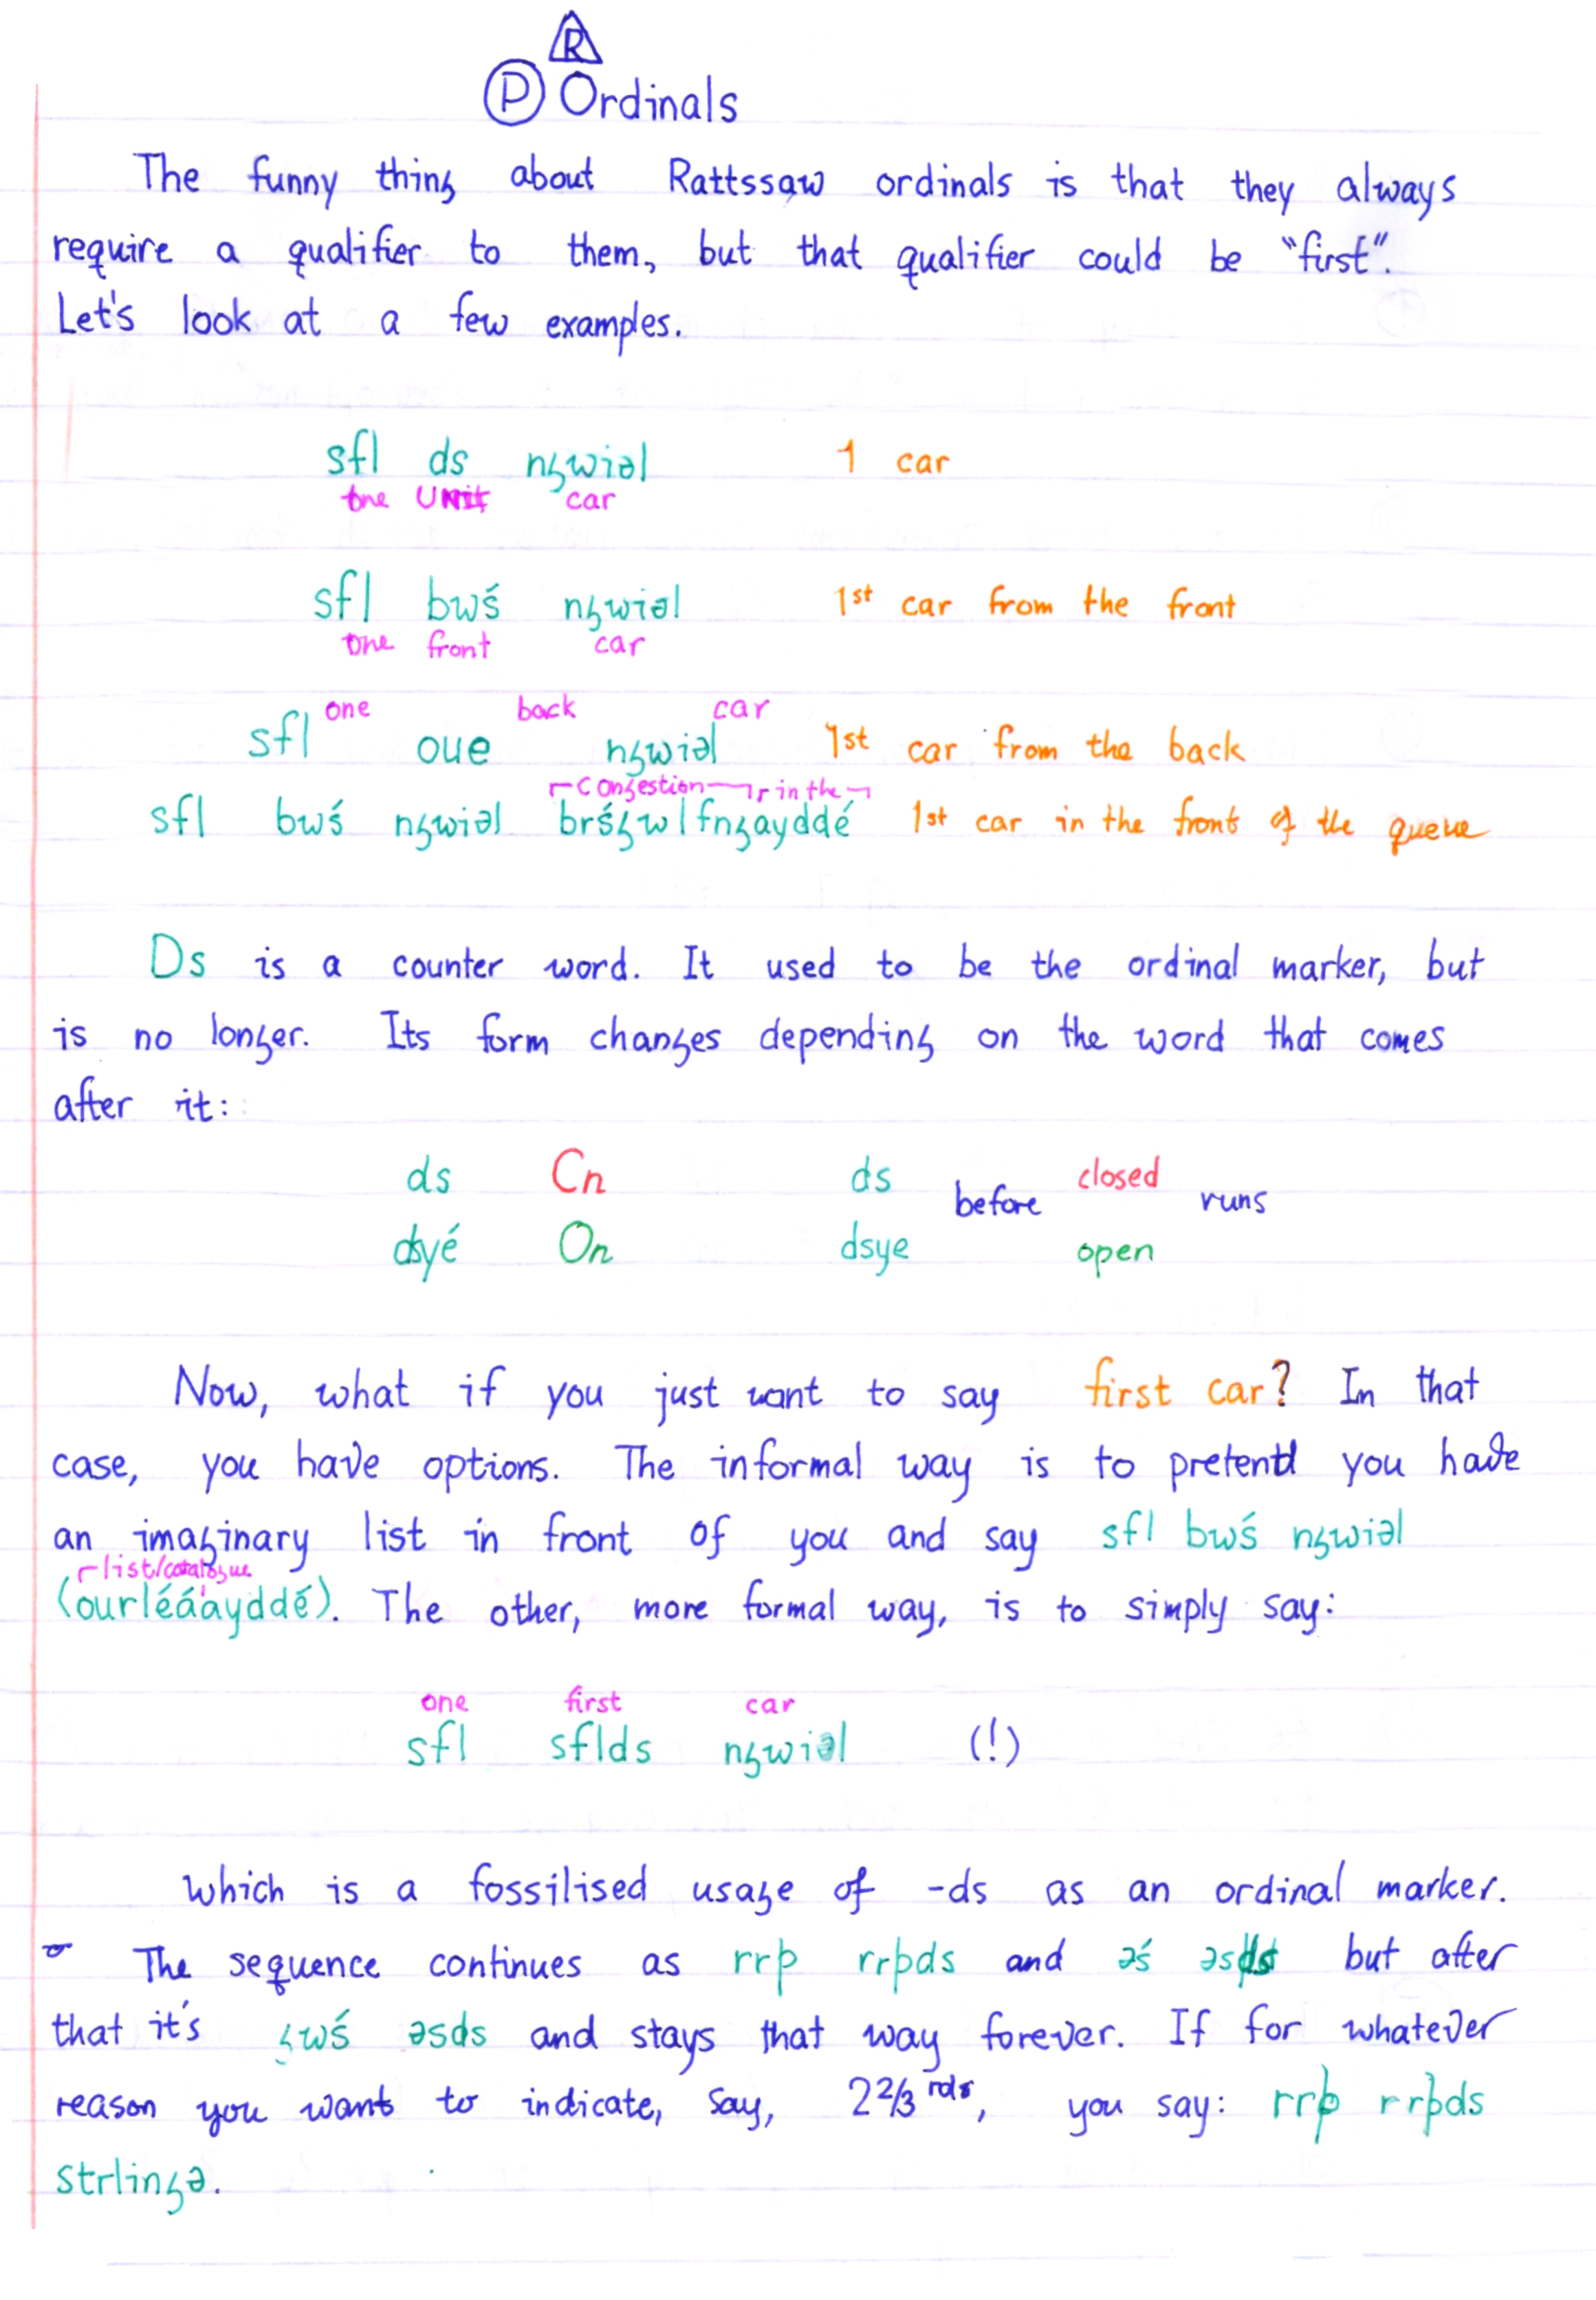 R
P Ordinals
The funny thing about Rattssaw ordinals is that they always
require a qualifier to them, but that qualifier could be “first”.
Let's look at a few examples.
sfl ds ngwiəl 1 car
one unit car
sfl bwś ngwiəl 1st car from the front
one front car
one back car
sfl oue ngwiəl 1st car from the back
congestion in the
sfl bwś ngwiəl brśgwlfngayddé 1st car in the front of the queue
Ds is a counter word. It used to be the ordinal marker, but
is no longer. Its form changes depending on the word that comes
after it:
ds Cn ds before closed runs
dsyé On dsye open
Now, what if you just want to say first car? In that
case, you have options. The informal way is to pretend you have
an imaginary list in front of you and say sfl bwś ngwiəl
list/catalogue
(ourléá'ayddé). The other, more formal way, is to simply say:
one first car
sfl sflds ngwiəl (!)
which is a fossilised usage of -ds as an ordinal marker.
The sequence continues as rrþ rrþds and əś əsds but after
that it's gwś əsds and stays that way forever. If for whatever
reason you want to indicate, say, 2 2/3 rds, you say: rrþ rrþds
strlingə.